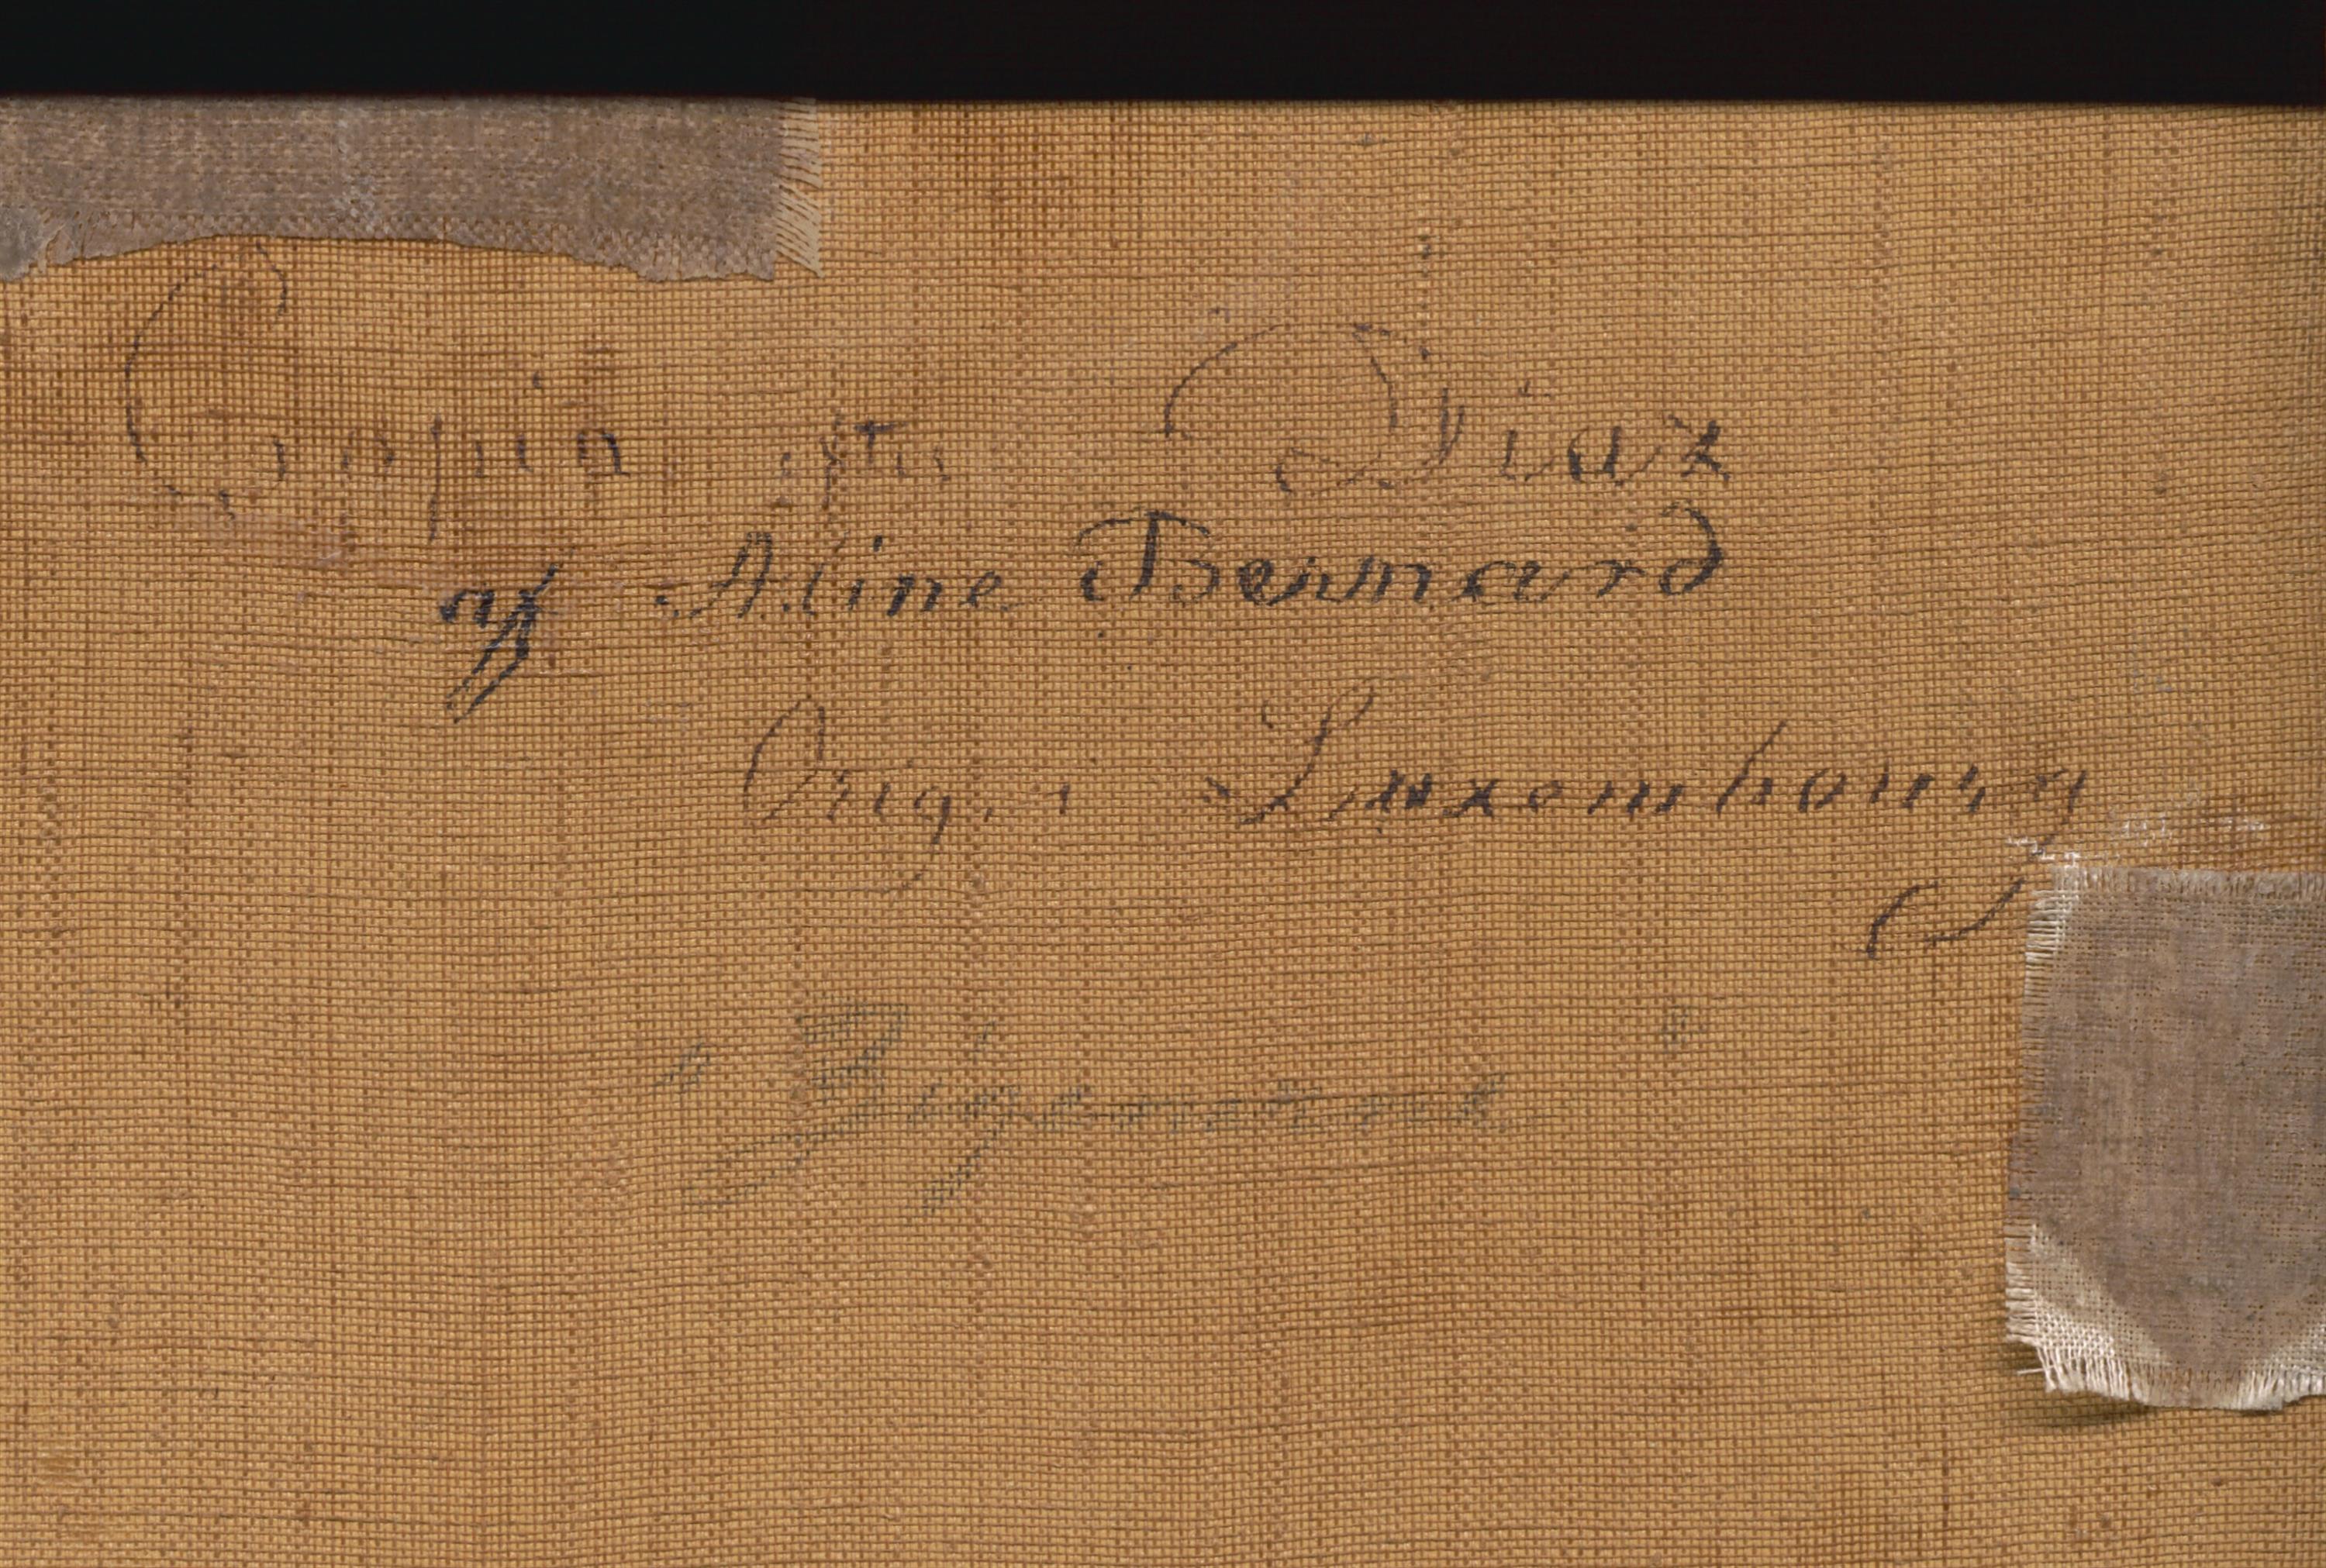 Copia efter Diaz
af Aline Bernard
Orig. i Luxembourg